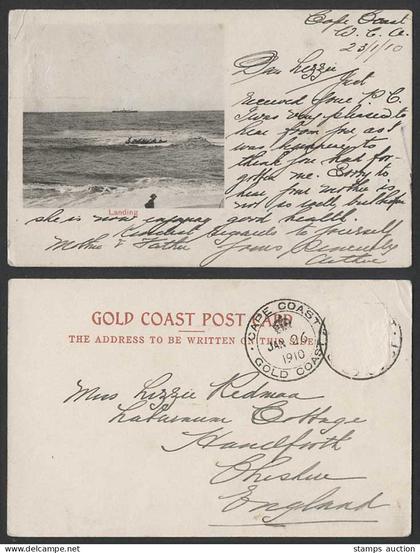 Cape Coast
W. C. A.
23/1/10
Dear Lizzie Just
received your P.C.
I was very pleased to
hear from you as I
was beginning to
think you had for-
gotten me. Sorry to
hear your mother is
not so well but hope
she is now enjoying good health.
Kindest regards to yourself
Mother & Father Yours Sincerely
Landing
GOLD COAST POST CARD
THE ADDRESS TO BE WRITTEN ON THIS SIDE
CAPE COAST
JAN 26
1910
GOLD COAST
Miss Lizzie Redman
Laburnum Cottage
Handforth
Cheshire
England
www.delcampe.net
stamps auction